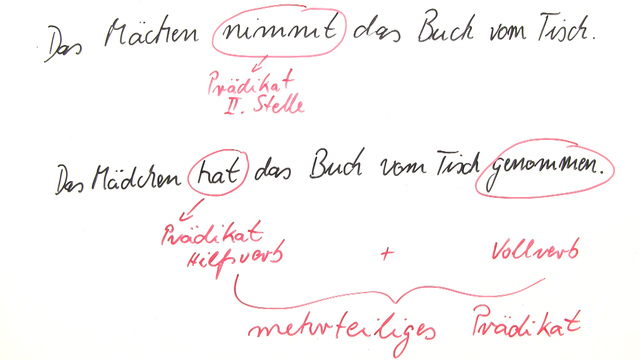 Das Mächen nimmt das Buch vom Tisch.
Prädikat
II. Stelle
Das Mädchen hat das Buch vom Tisch genommen.
Prädikat
Hilfsverb + Vollverb
mehrteiliges Prädikat